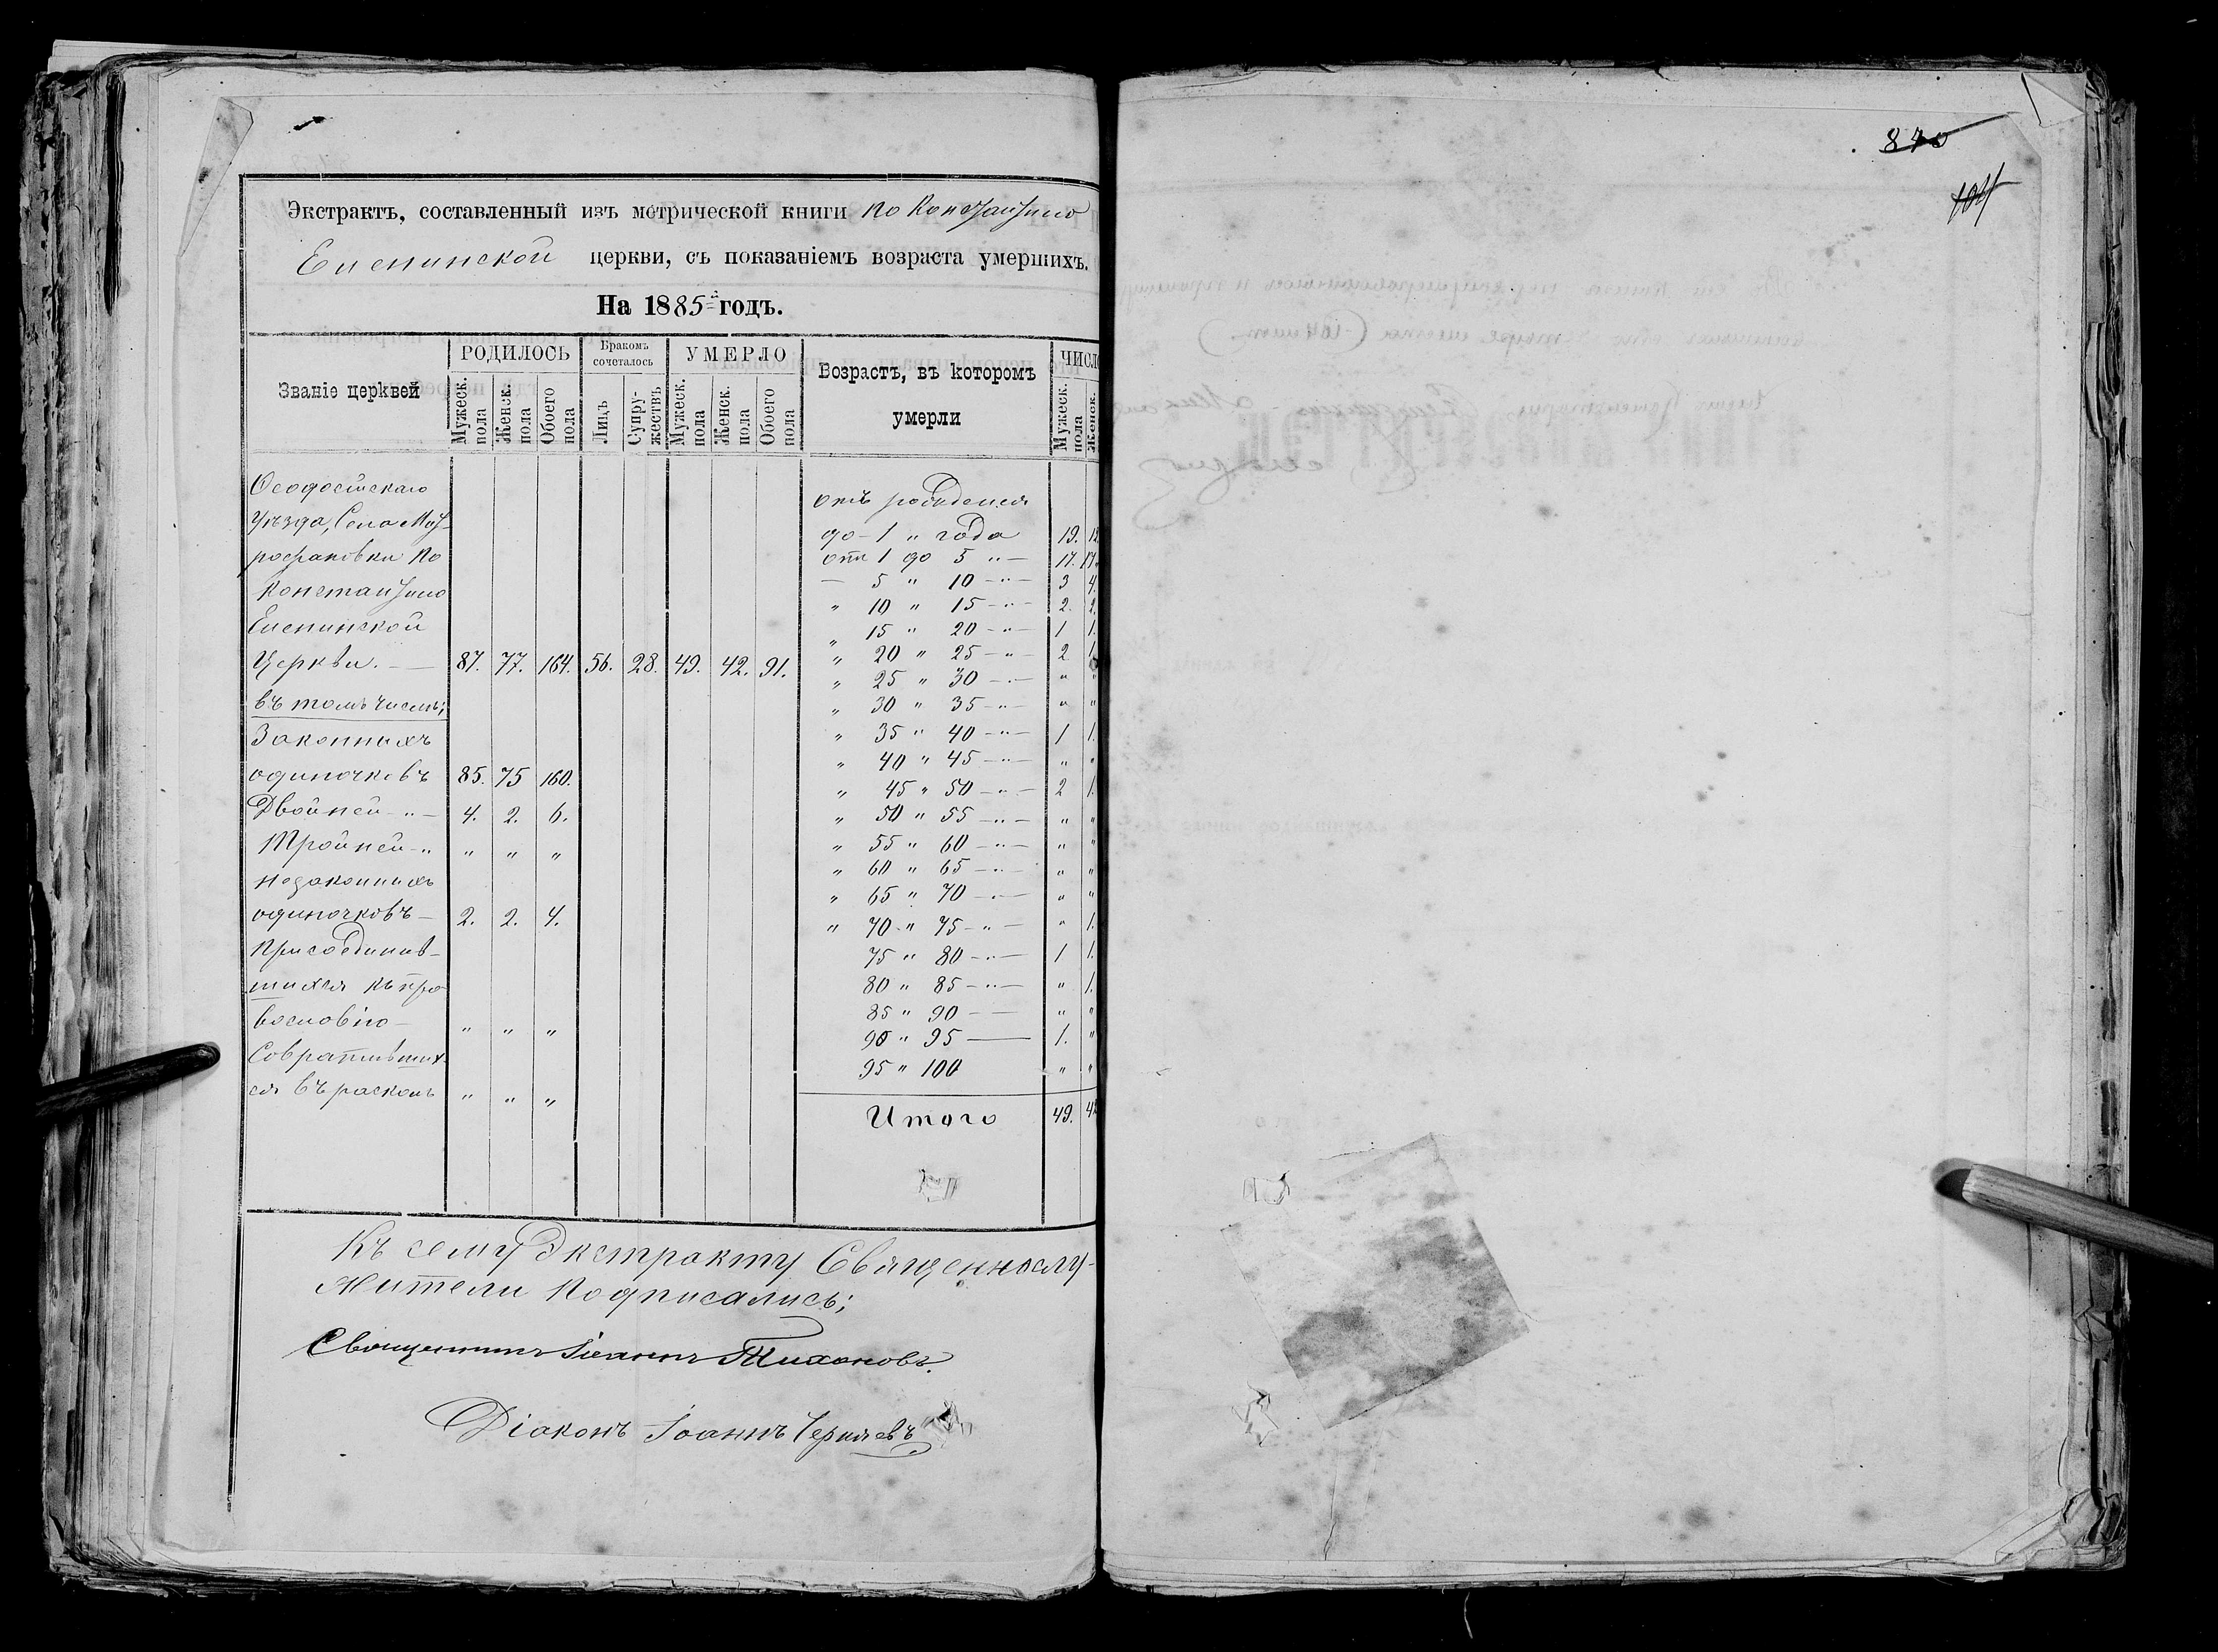 Экстрактъ, составленный изъ метрической книги по Константино
Еленинской церкви, съ показаніемъ возраста умершихъ.
На 1885й годъ.
Званіе церквей
РОДИЛОСЬ
Бракомъ сочеталось
УМЕРЛО
Возрастъ, въ которомъ умерли
ЧИСЛО
Мужеск. пола
Женск. пола
Обоего пола
Лицъ
Супружествъ
Мужеск. пола
Женск. пола
Обоего пола
Мужеск. пола
Женск.
Ѳеодосійскаго
Уѣзда, Села
по
Константино
Еленинской
Церкви. — 87. 77. 164. 56. 28. 49. 42. 91.
въ томъ числѣ;
Законныхъ
одиночковъ 85. 75 160.
Двойней „ — 4. 2. 6.
Тройней „ „ „ „
незаконныхъ
одиночковъ — 2. 2. 4.
Присоединив-
шихся къ пра
вославію — „ „ „
Совративших-
ся въ расколъ „ „ „
отъ рожденія
до - 1 „ года 19.
отъ 1 до 5 „ — 17. 17.
— 5 „ 10 - „ — 3 4.
„ 10 „ 15 - „ — 2. 2.
„ 15 „ 20 - „ — 1 1.
„ 20 „ 25 - „ — 2 1.
„ 25 „ 30 - „ — „ „
„ 30 „ 35 - „ — „ „
„ 35 „ 40 - „ — 1 1.
„ 40 „ 45 - „ — „ „
„ 45 „ 50 - „ — 2 1.
„ 50 „ 55 - „ — „ „
„ 55 „ 60 - „ — „ „
„ 60 „ 65 - „ — „ „
„ 65 „ 70 - „ — „ „
„ 70 „ 75 - „ — „ 1.
75 „ 80 - „ — 1 1.
80 „ 85 - „ — „ 1.
85 „ 90 - — „ „
90 „ 95 — 1. „
95 „ 100 „ „
Итого 49. 42
Къ сему Экстракту Священнослу-
жители подписались;
Священникъ Іоаннъ Тихановъ.
Діаконъ Іоаннъ Черняевъ
840
104